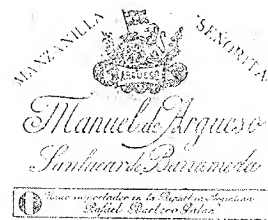 MANZANILLA SEÑORITA
ARGUESO
Manuel de Argueso
Sanlucar de Barrameda
Unico importador en la República Argentina
Rafael